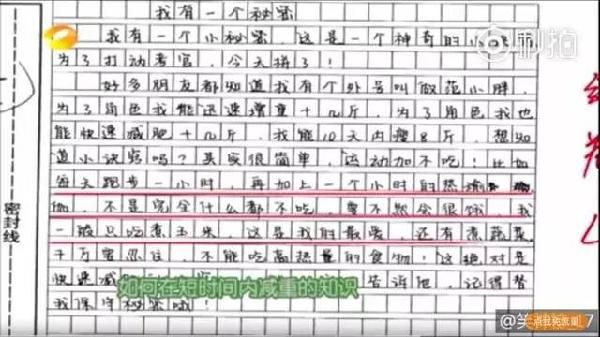 我有一个秘密
我有一个小秘密,这是一个神奇的小
为了打动考官,今天拼了!
好多朋友都知道我有个外号叫微范小胖,
为了角色我能迅速增重十几斤,为了角色我也
能快速减肥十几斤,我能10天内瘦8斤,想知
道小诀窍吗?其实很简单,运动加不吃!比如
每天跑步一小时,再加上一个小时的热瑜
伽,不是完全什么都不吃,要不然会很饿,我
一般只吃煮玉米,这是我的最爱,还有煮蔬菜,
千万要忍住,不能吃高热量的食物!这绝对是
快速减
告诉他,记得替
我保守秘密哦!
如何在短时间内减重的知识
密封线
秒拍